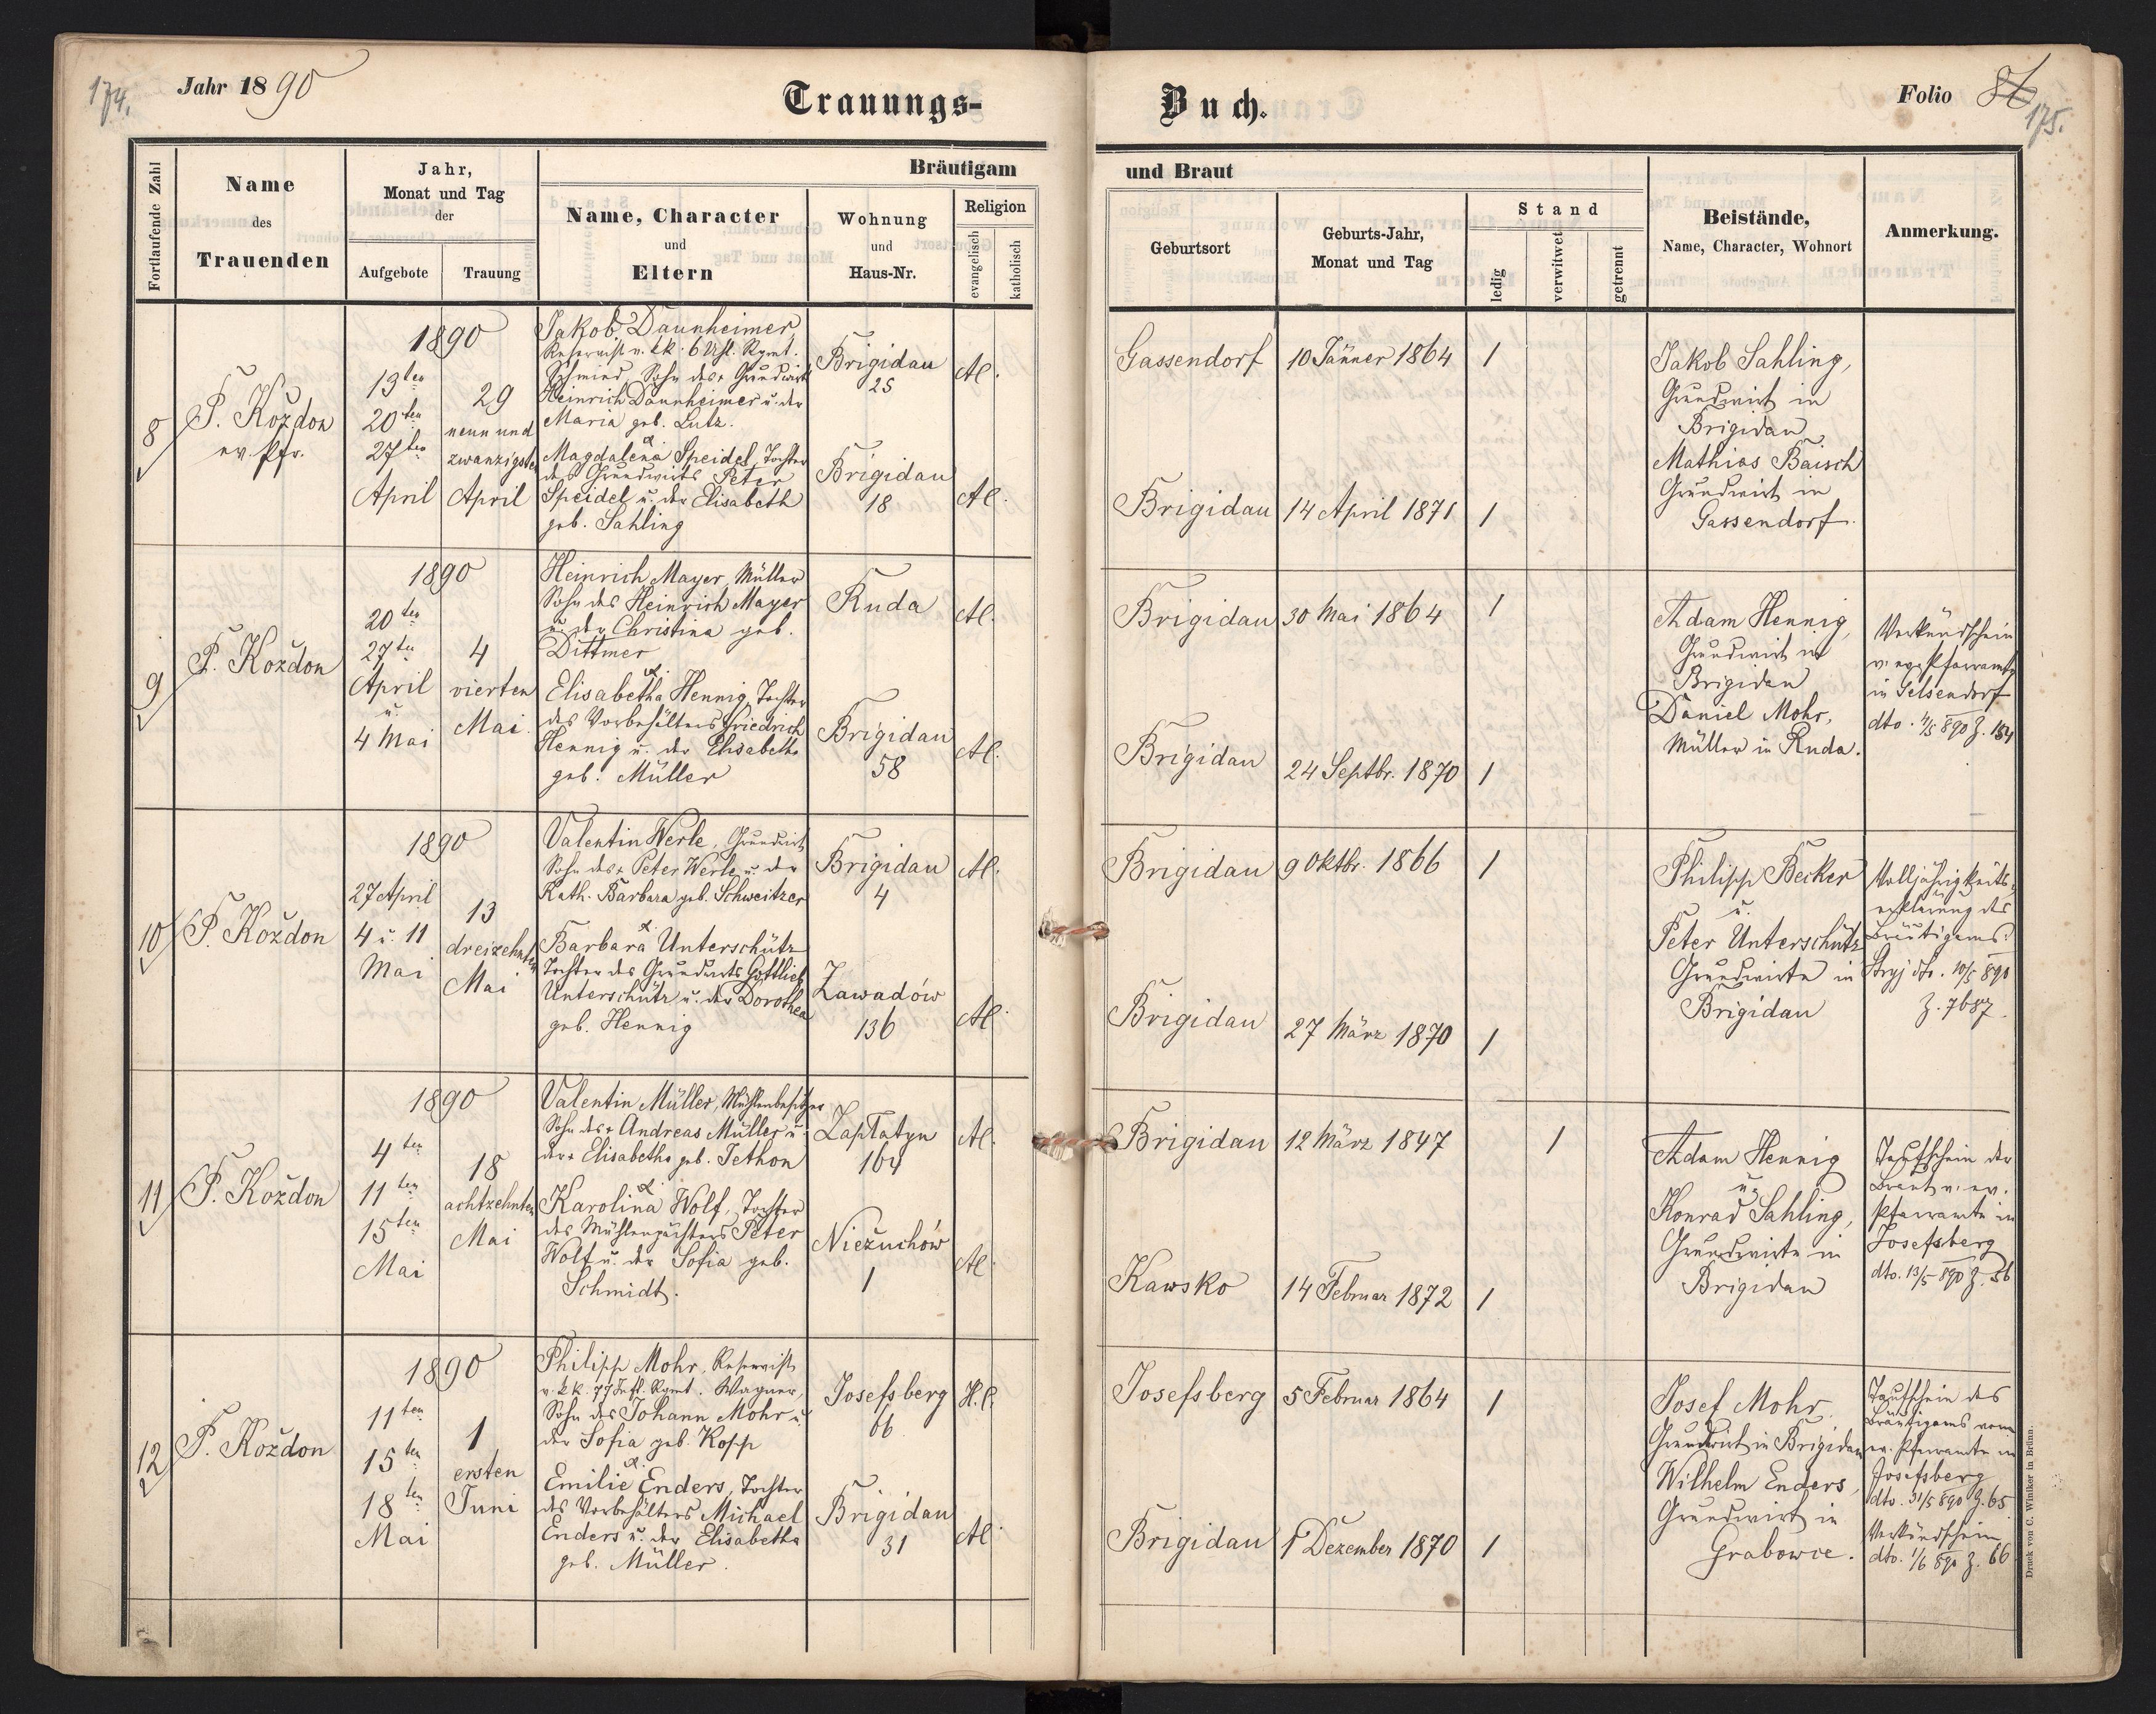 174.
Jahr 1890
Trauungs-
Buch.
Folio 86
175.
Fortlaufende Zahl
Name
des
Trauenden
Jahr,
Monat und Tag
der
Aufgebote
Trauung
Bräutigam
und Braut
Name, Character
und
Eltern
Wohnung
und
Haus-Nr.
Religion
evangelisch
katholisch
Geburtsort
Geburts-Jahr,
Monat und Tag
Stand
ledig
verwitwet
getrennt
Beistände,
Name, Character, Wohnort
Anmerkung.
8
P. Koždon
ev. Pfr.
1890
13ten
20ten
27ten
April
29
neun und
zwanzigsten
April
Jakob Daunheimer
Reservist v. k.k. 6 Rgmt.
Schmied, Sohn des + Grundwirt
Heinrich Daunheimer u. der
Maria geb. Lutz.
&
Magdalena Speidel, Tochter
des Grundwirts Peter
Speidel u. der Elisabeth
geb. Sahling
Brigidau
25
Brigidau
18
A.C.
A.C.
Gassendorf
10 Jänner 1864
1
Brigidau
14 April 1871
1
Jakob Sahling,
Grundwirt in
Brigidau
Mathias Baisch
Grundwirt in
Gassendorf.
9
P. Koždon
1890
20ten
27ten
April
u.
4 Mai
4
vierten
Mai.
Heinrich Mayer, Müller
Sohn des Heinrich Mayer
u. der Christina geb.
Dittmer
&
Elisabetha Hennig, Tochter
des Vorbehälters Friedrich
Hennig u. der Elisabetha
geb. Müller
Ruda
Brigidau
58
A.C.
A.C.
Brigidau
30 Mai 1864
1
Brigidau
24 Septbr. 1870
1
Adam Hennig,
Grundwirt in
Brigidau
Daniel Mohr,
Müller in Ruda.
Verkündschein
v. ev. Pfarramte
in Gelsendorf
dto. 4/5 890 Z. 154
10
P. Koždon
1890
27 April
4 u. 11
Mai
13
dreizehnten
Mai
Valentin Werle, Grundwirt
Sohn des + Peter Werle u. der
Kath. Barbara geb. Schweitzer
&
Barbara Unterschütz
Tochter des Grundwirts Gottlieb
Unterschütz u. der Dorothea
geb. Hennig
Brigidau
4
Zawadów
136
A.C.
A.C.
Brigidau
9 Oktbr. 1866
1
Brigidau
27 März 1870
1
Philipp Becker
u.
Peter Unterschütz
Grundwirte in
Brigidau
Volljährigkeits-
erklärung des
Bräutigams.
Stryj dto. 10/5 890
Z. 7687.
11
P. Koždon
1890
4ten
11ten
15ten
Mai
18
achtzehnten
Mai
Valentin Müller, Mühlenbesitzer
Sohn des + Andreas Müller u.
der + Elisabetha geb. Tethon
&
Karolina Wolf, Tochter
des Mühlenpächters Peter
Wolf u. der Sofia geb.
Schmidt.
Zaplatyn
164
Nieżuchów
1
A.C.
A.C.
Brigidau
12 März 1847
1
Kawsko
14 Februar 1872
1
Adam Hennig
u.
Konrad Sahling,
Grundwirte in
Brigidau
Taufschein der
Braut v. ev.
Pfarramte in
Josefsberg
dto. 13/5 890 Z. 56
12
P. Koždon
1890
11ten
15ten
18ten
Mai
1
ersten
Juni
Philipp Mohr, Reservist
v. k.k. 77 Inft. Rgmt. Wagner,
Sohn des Johann Mohr u.
der Sofia geb. Kopp
&
Emilie Enders, Tochter
des Vorbehälters Michael
Enders u. der Elisabetha
geb. Müller.
Josefsberg
66
Brigidau
31
H.C.
A.C.
Josefsberg
5 Februar 1864
1
Brigidau
1 Dezember 1870
1
Josef Mohr
Grundwirt in Brigidau
Wilhelm Enders,
Grundwirt in
Grabowce.
Taufschein des
Bräutigams vom
ev. Pfarramte in
Josefsberg
dto. 31/5 890 Z. 65
Verkündschein
dto. 1/6 890 Z. 66
Druck von C. Winiker in Brünn.